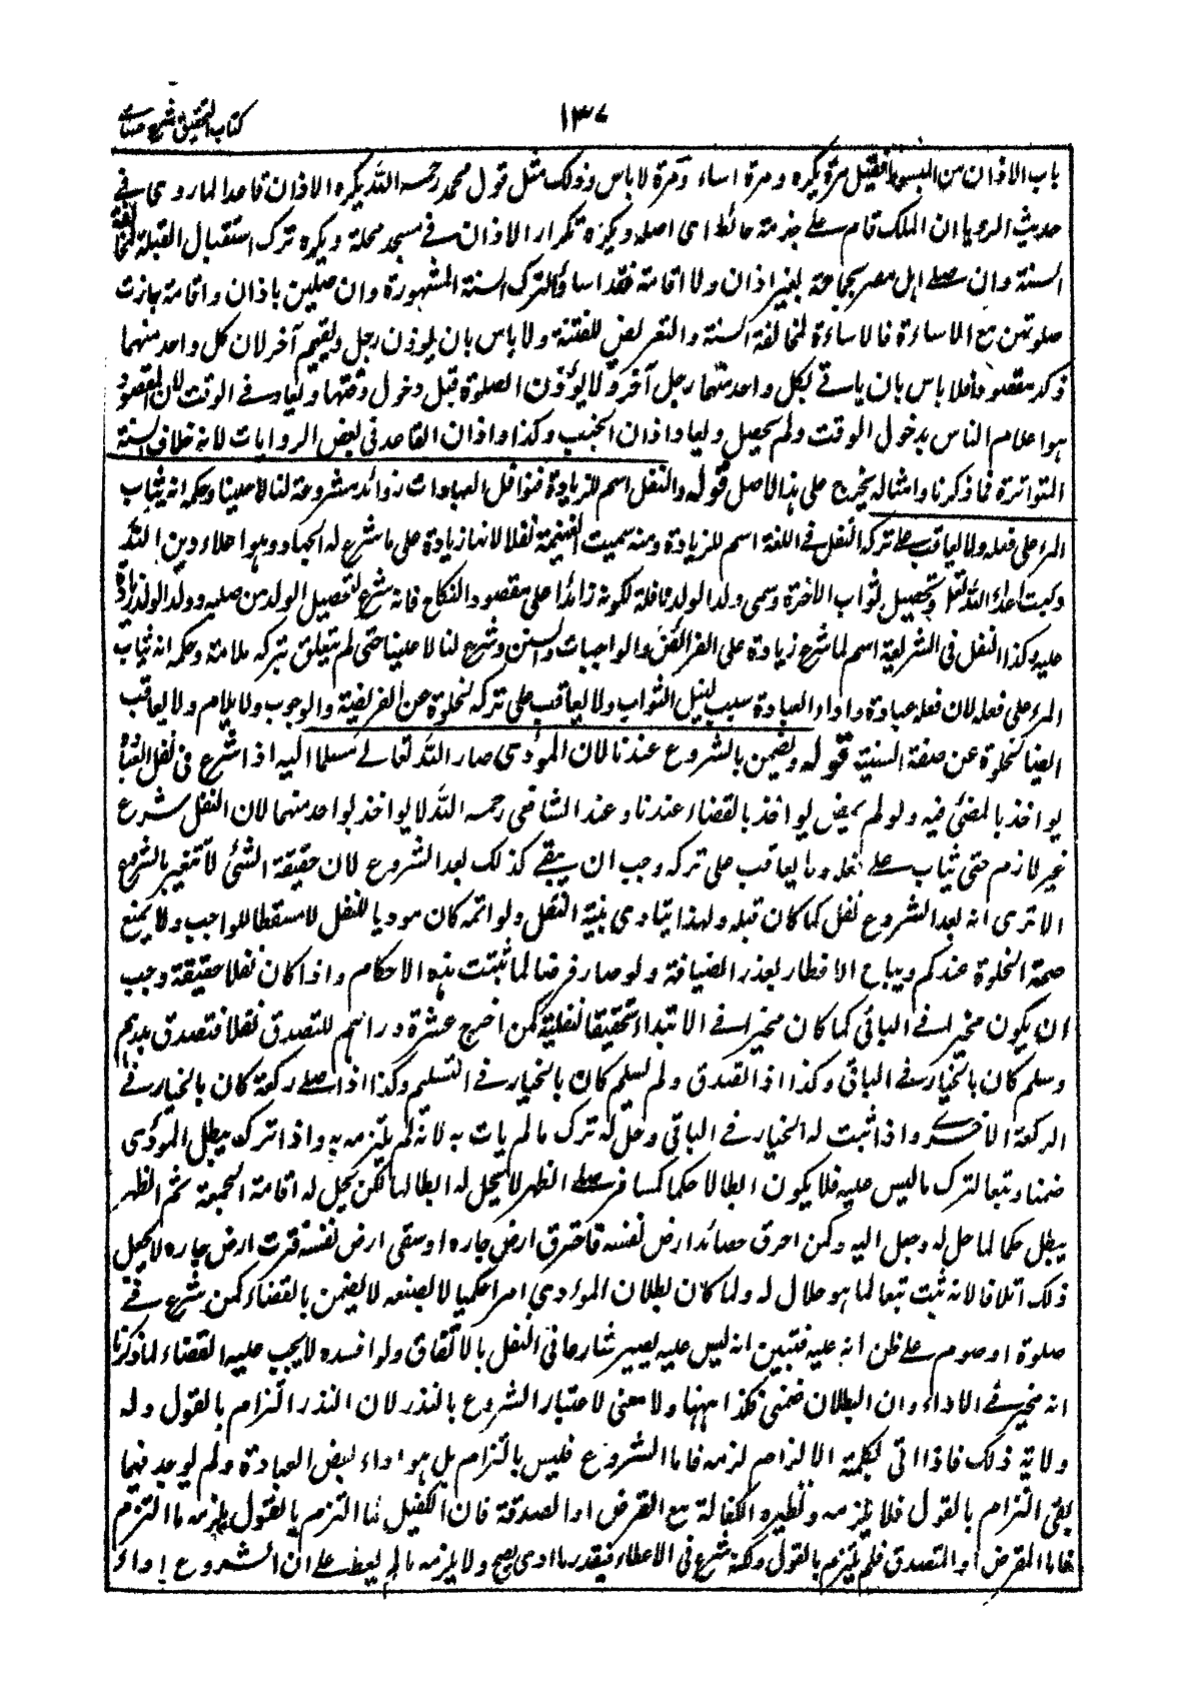 كتاب التحقيق شرح حسامى
١٣٧
باب الاذان من المبسوط فقيل مرة يكره ومرة اساء ومرة لا باس وذلك مثل قول محمد رحمه الله يكره الاذان قاعدا لما روى فى
حديث الرويا ان الملك قام على جذمة حائط اى اصله ويكره تكرار الاذان فى مسجد محلة ويكره ترك استقبال القبلة لمخالفة
السنة وان صلى اهل مصر بجماعة بغير اذان ولا اقامة فقد اساؤا لترك السنة المشهورة وان صلين باذان واقامة جازت
صلوتهن مع الاساءة فالاساءة لمخالفة السنة والتعريض للفتنة ولا باس بان يوذن رجل ويقيم آخر لان كل واحد منهما
ذكر مقصود فلا باس بان ياتى بكل واحد منهما رجل آخر ولا يؤذن الصلوة قبل دخول وقتها ويعاد فى الوقت لان المقصود
هو اعلام الناس بدخول الوقت ولم يحصل ويعاد اذان الجنب وكذا اذان القاعد فى بعض الروايات لانه خلاف السنة
المتواترة فما ذكرنا وامثاله يخرج على هذا الاصل قوله والنفل اسم للزيادة فنوافل العبادات زوائد مشروعة لنا لا علينا وحكمه انه يثاب
المرء على فعله ولا يعاقب على تركه النفل فى اللغة اسم للزيادة ومنه سميت الغنيمة نفلا لانها زيادة على ما شرع له الجهاد وهو اعلاء دين الله
وكبت اعداء الله تعالى وتحصيل ثواب الآخرة وسمى ولد الولد نافلة لكونه زائدا على مقصود النكاح فانه شرع لتحصيل الولد من صلبه وولد الولد زيادة
عليه وكذا النفل فى الشريعة اسم لما شرع زيادة على الفرائض والواجبات والسنن وشرع لنا لا علينا حتى لم يتعلق بتركه ملامة وحكمه انه يثاب
المرء على فعله لان فعله عبادة واداء العبادة سبب لنيل الثواب ولا يعاقب على تركه لخلوه عن الفريضية والوجوب ولا يلام ولا يعاقب
ايضا لخلوه عن صفة السنية قوله ويضمن بالشروع عندنا لان المؤدى صار لله تعالى مسلما اليه اذا شرع فى نفل العبادة
يواخذ بالمضى فيه ولو لم يمض يواخذ بالقضاء عندنا وعند الشافعى رحمه الله لا يواخذ بواحد منهما لان النفل شرع
غير لازم حتى يثاب على فعله ولا يعاقب على تركه وجب ان يبقى كذلك بعد الشروع لان حقيقة الشئ لا تتغير بالشروع
الا ترى انه بعد الشروع نفل كما كان قبله ولهذا يتادى بنية النفل ولو اتمه كان موديا للنفل لا مسقطا للواجب ولا يمنع
صحة الخلوة عندكم ويباح الافطار بعذر الضيافة ولو صار فرضا لما ثبتت هذه الاحكام واذا كان نفلا حقيقة وجب
ان يكون مخيرا فى الباقى كما كان مخيرا فى الابتداء تحقيقا لنفلية كمن اخرج عشرة دراهم للتصدق نفلا فتصدق بدرهم
وسلم كان بالخيار فى الباقى وكذا اذا تصدق ولم يسلم كان بالخيار فى التسليم وكذا اذا صلى ركعة كان بالخيار فى
الركعة الاخرى واذا ثبت له الخيار فى الباقى وحل له ترك ما لم يات به لانه لم يلتزمه به واذا ترك يبطل المؤدى
ضمنا وتبعا لترك ما ليس عليه فلا يكون ابطالا حكما كمسافر صلى الظهر لا يحل له ابطالها لكن يحل له اقامة الجمعة ثم الظهر
يبطل حكما لما حل له وصل اليه وكمن احرق حصائد ارض نفسه فاحترق ارض جاره او سقى ارض نفسه فنزت ارض جاره لا يجعل
ذلك اتلافا لانه ثبت تبعا لما هو حلال له ولما كان بطلان المؤدى امرا حكميا لا بصنعه لا يضمن بالقضاء كمن شرع فى
صلوة او صوم على ظن انه عليه فتبين انه ليس عليه يصير شارعا فى النفل بالاتفاق ولو افسده لا يجب عليه القضاء لما ذكرنا
انه مخير فى الاداء وان البطلان ضمنى فكذا ههنا ولا معنى لاعتبار الشروع بالنذر لان النذر التزام بالقول وله
ولاية ذلك فاذا اتى بكلمة الالزام لزمه فاما الشروع فليس بالتزام بل هو اداء لبعض العبادة ولم يوجد فيما
بقى التزام بالقول فلا يلزمه ونظيره الكفالة مع القرض او الصدقة فان الكفيل لما التزم بالقول يلزمه ما التزم
فاما المقرض او المتصدق فلم يلتزم بالقول ولكنه شرع فى الاعطاء فبقدر ما ادى يصح ولا يلزمه ما لم يعط على ان الشروع اداء